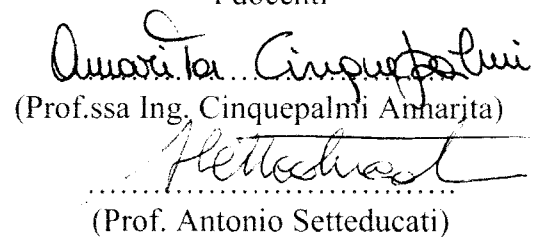 I docenti
Annarita Cinquepalmi
(Prof.ssa Ing. Cinquepalmi Annarita)
ASetteducati
(Prof. Antonio Setteducati)